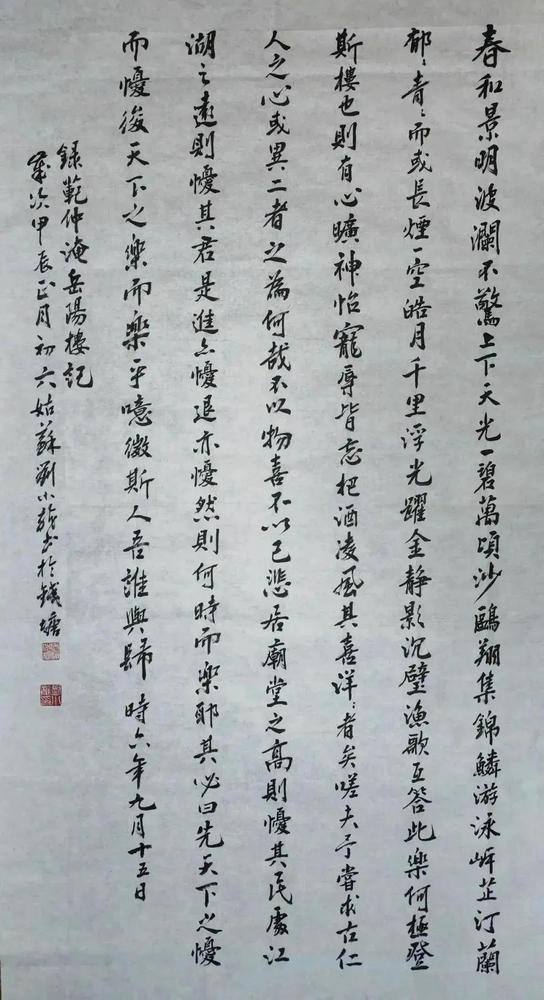 春和景明波瀾不驚上下天光一碧萬頃沙鷗翔集錦鱗游泳岸芷汀蘭
郁〻青〻而或長煙一空皓月千里浮光躍金靜影沉璧漁歌互答此樂何極登
斯樓也則有心曠神怡寵辱皆忘把酒凌風其喜洋〻者矣嗟夫予嘗求古仁
人之心或異二者之為何哉不以物喜不以己悲居廟堂之高則憂其民處江
湖之遠則憂其君是進亦憂退亦憂然則何時而樂耶其必曰先天下之憂
而憂後天下之樂而樂乎噫微斯人吾誰與歸 時六年九月十五日
錄範仲淹岳陽樓記
歲次甲辰正月初六姑蘇劉小龍書於錢塘